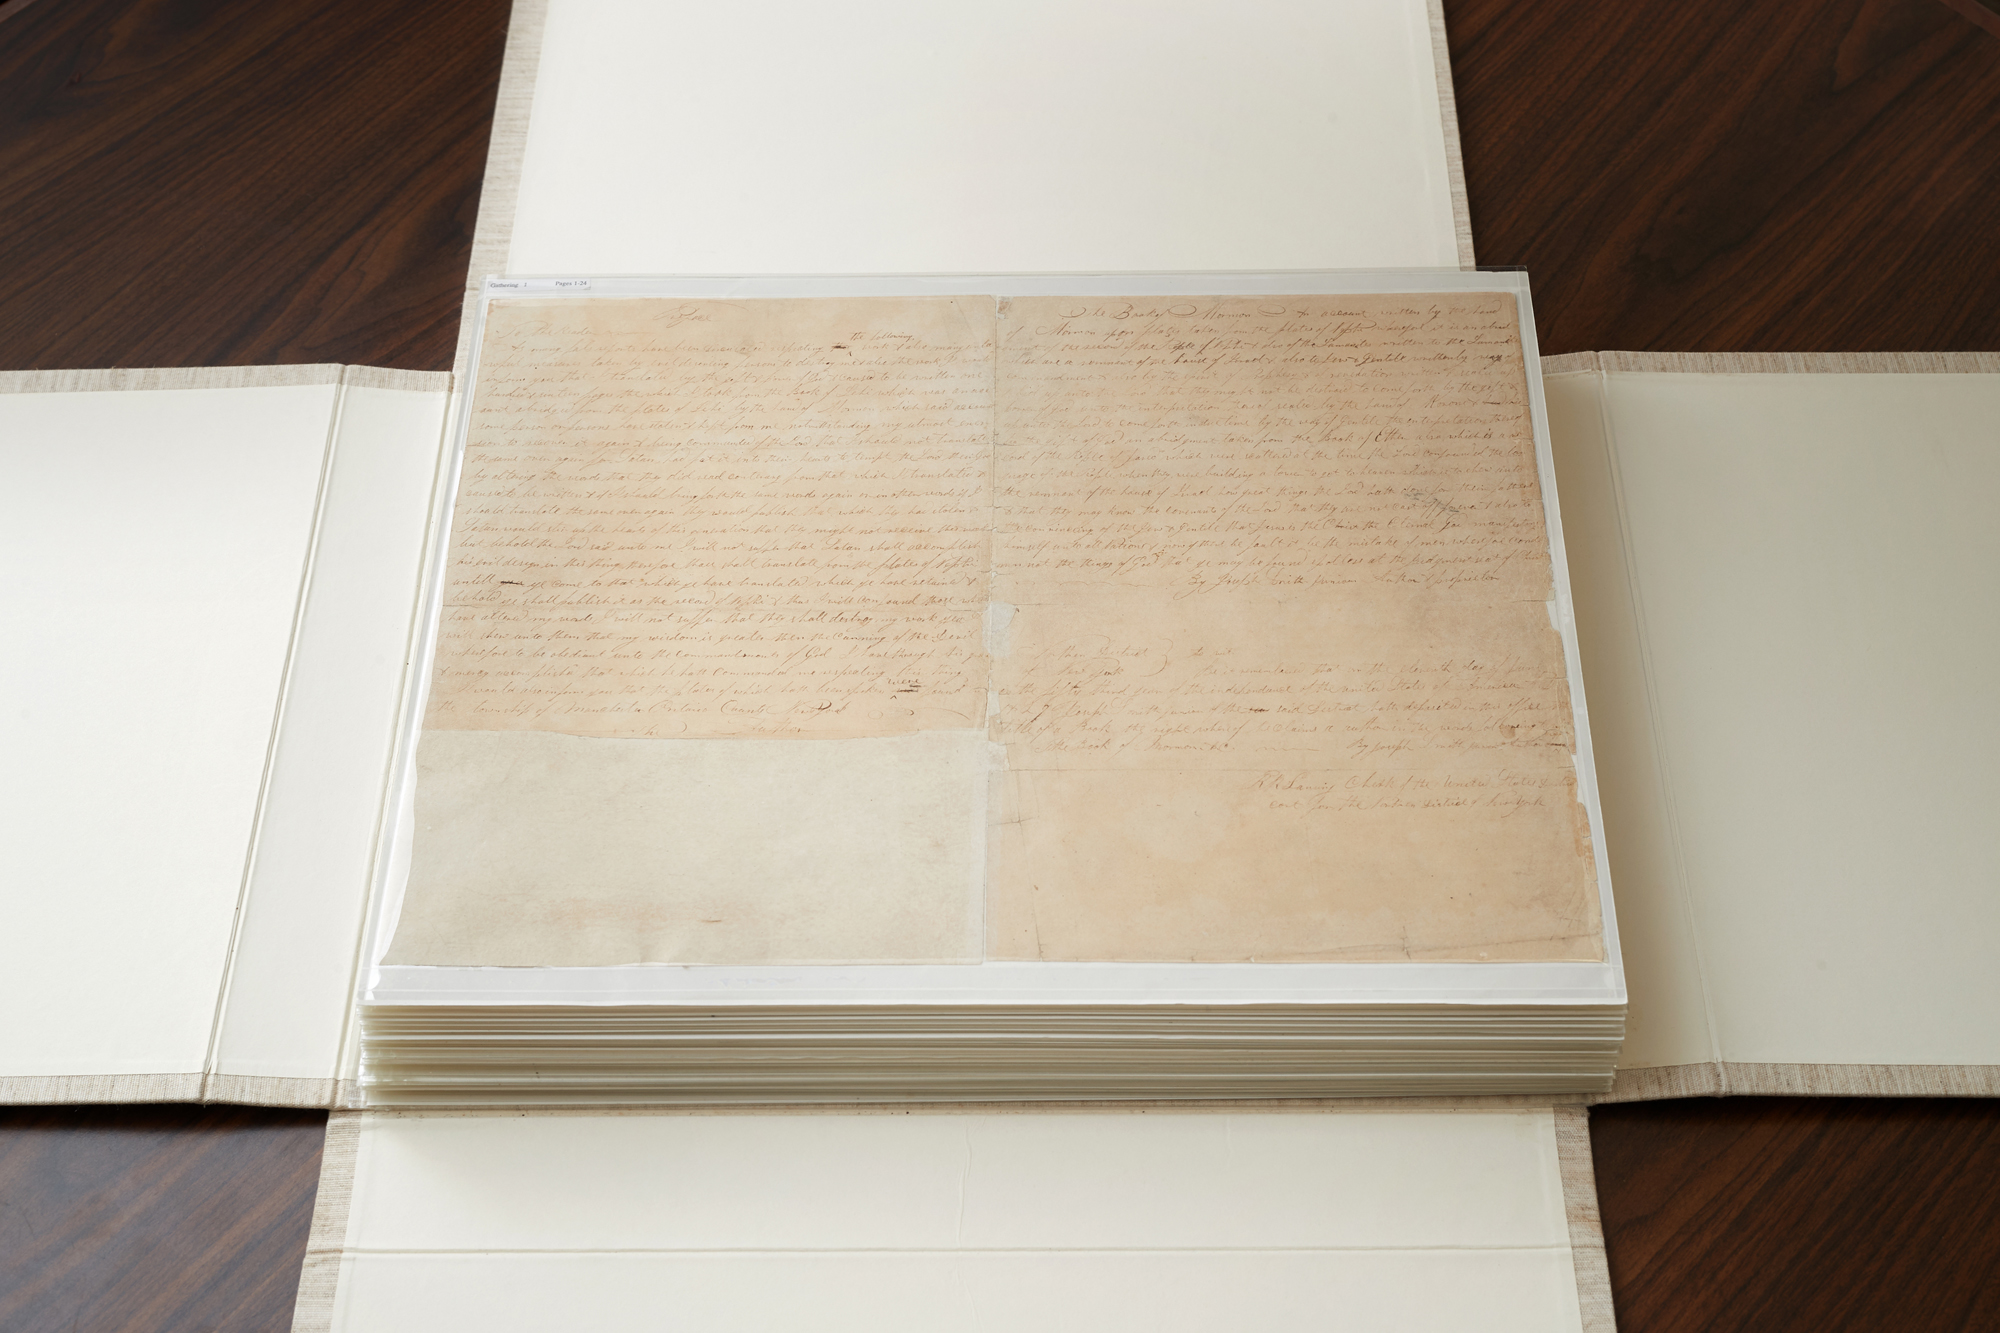 Gathering 1 Pages 1-24
Preface
To the Reader
the following
As many false reports have been work & also many unlawful
measures taken by evil designing persons to destroy me & also the work I would
inform you that I translated by the gift & power of God & caused to be
hundred & sixteen pages the which I took from the Book of Lehi which was an account
abridged from the plates of Lehi by the hand of Mormon which said account
some person or persons have stolen & kept from me notwithstanding my utmost
to recover it again & being commanded of the Lord that I should not translate
the same over again for Satan had put it into their hearts to tempt the Lord their God
by altering the words that they did read contrary from that which I translated &
caused to be written & if I should bring forth the same words again or in other words if I
should translate the same over again they would publish that which they had stolen &
Satan would stir up the hearts of this generation that they might not receive this work
but behold the Lord said unto me I will not suffer that Satan shall accomplish
his evil design in this thing therefore thou shalt translate from the plates of Nephi
untill ye come to that which ye have translated which ye have retained &
behold ye shall publish it as the record of Nephi & thus I will confound those who
have altered my words I will not suffer that they shall destroy my work yea
I will shew unto them that my wisdom is greater then the cunning of the Devil
wherefore to be obedient unto the commandments of God I have through his grace
& mercy accomplished that which he hath commanded me respecting this thing
were
I would also inform you that the plates of which hath been spoken found
the township of Manchester Ontario County New York
The Author
The Book of Mormon An account written by the hand
of Mormon upon plates taken from the plates of Nephi wherefore it is an abridgment
of the record of the People of Nephi & also of the Lamanites written to the Lamanites
which are a remnant of the house of Israel & also to Jew & Gentile written by way of
commandment & also by the spirit of Prophesy & of revelation written & sealed up
& hid up unto the Lord that they might not be destroyed to come forth by the gift &
power of God unto the interpretation thereof sealed by the hand of Moroni & hid up
unto the Lord to come forth in due time by the way of Gentile the interpretation thereof
by the gift of God an abridgment taken from the Book of Ether also which is a record
of the People of Jared which were scattered at the time the Lord confounded the language
of the People when they were building a tower to get to Heaven which is to shew unto
the remnant of the house of Israel how great things the Lord hath done for their fathers
& that they may know the covenants of the Lord that they are not cast off forever & also to
the convincing of the Jew & Gentile that Jesus is the Christ the Eternal God manifesting
himself unto all Nations & now if there be fault it be the mistake of men wherefore condemn
not the things of God that ye may be found spotless at the judgment seat of Christ
By Joseph Smith junior Author & proprietor
Northern District
of New York } to wit
Be it remembered that on the eleventh day of June
in the fifty third year of the independance of the united States of America
Joseph Smith junior of the said District hath deposited in this office
title of a Book the right whereof he claims as author in the words following
the Book of Mormon &c By Joseph Smith junior Author
R R Lansing Clerk of the United States
court for the northern District of New York